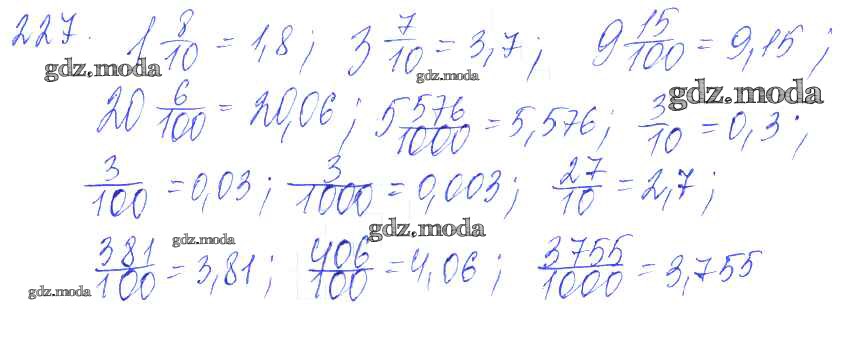 227. 1 8/10 = 1,8; 3 7/10 = 3,7; 9 15/100 = 9,15;
gdz.moda gdz.moda
20 6/100 = 20,06; 5 576/1000 = 5,576; 3/10 = 0,3;
gdz.moda
3/100 = 0,03; 3/1000 = 0,003; 27/10 = 2,7;
gdz.moda gdz.moda
381/100 = 3,81; 406/100 = 4,06; 3755/1000 = 3,755
gdz.moda